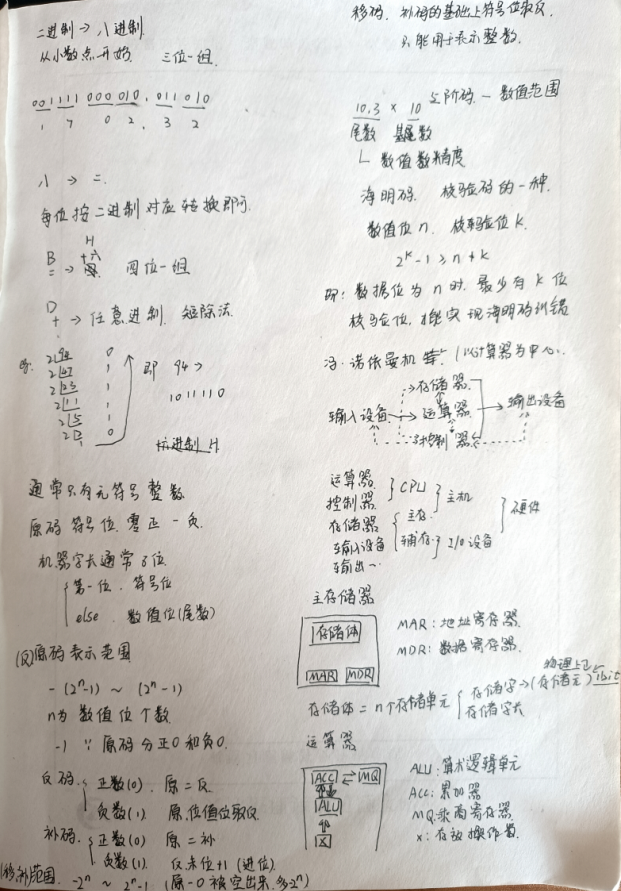 二进制 → 八进制.
从小数点开始. 三位一组.
001111 000 010 . 011 010
1 7 0 2 . 3 2
八 → 二.
每位按二进制对应转换即可.
B H
二 → 十六 四位一组
D
十 → 任意进制. 短除法.
2|94 0
2|47 1
2|23 1
2|11 1
2|5 1
2|2 0
1
即 94 →
1011110
通常只有无符号整数.
原码 符号位. 零正一负.
机器字长通常8位.
第一位. 符号位
else. 数值位(尾数)
(反)原码表示范围
-(2ⁿ-1) ~ (2ⁿ-1)
n为数值位个数.
-1 ∵ 原码分正0和负0.
反码. 正数(0). 原=反.
负数(1). 原.位值位取反.
补码. 正数(0) 原=补
负数(1). 反.末位+1 (进位).
(移补)范围. -2ⁿ ~ 2ⁿ-1 (原-0被空出来.多2ⁿ)
移码. 补码的基础上符号位取反.
只能用于表示整数.
10.3 × 10 阶码. - 数值范围
尾数 基数
数值数精度
海明码. 校验码的一种.
数值位n. 校验位k.
2ᵏ-1 ≥ n+k
即: 数据位为n时. 最少有k位
校验位, 才能实现海明码纠错
冯·诺依曼机 (以计算器为中心.
存储器
输入设备 → 运算器 → 输出设备
控制器
运算器
控制器 } CPU } 主机
存储器 { 主存. } 硬件
输入设备 辅存. } I/O设备
输出~.
主存储器
存储体
MAR MDR
MAR: 地址寄存器.
MDR: 数据寄存器.
物理上
存储体 = n个存储单元 { 存储字→(存储元) 1bit
存储字长
运算器
ACC ⇄ MQ
ALU
X
ALU: 算术逻辑单元
ACC: 累加器
MQ: 乘商寄存器
x: 存放操作数.